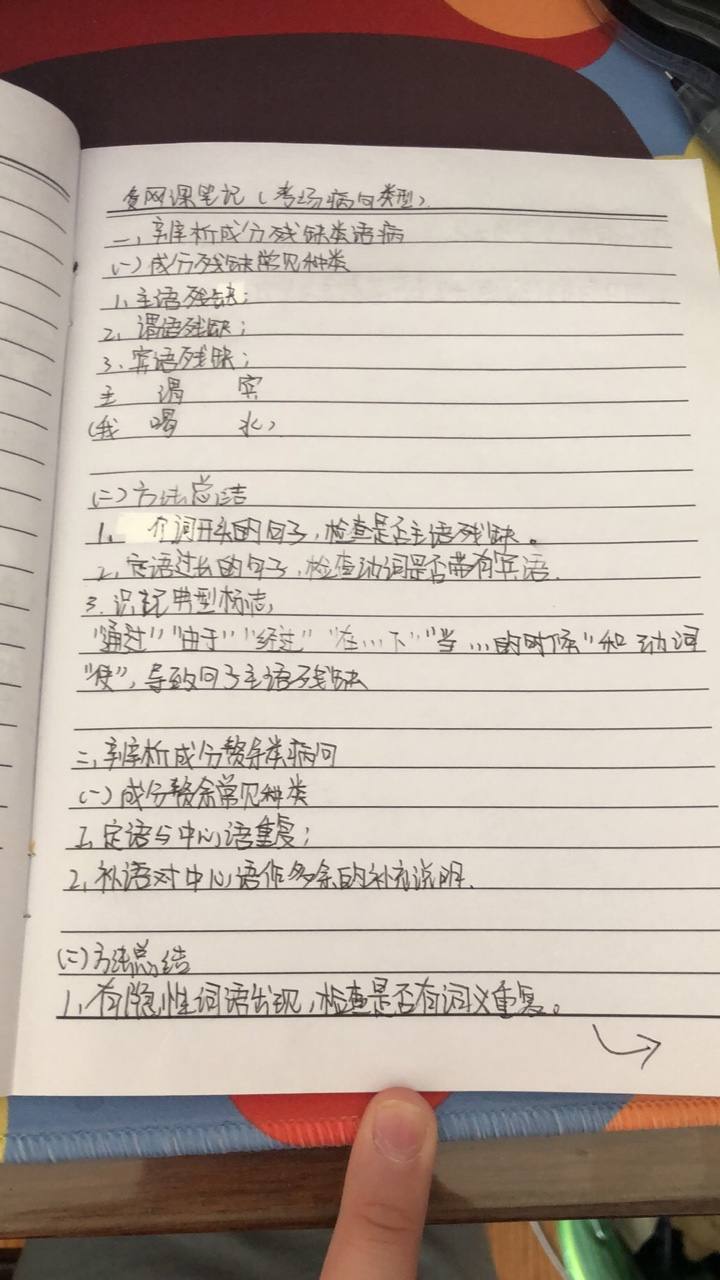 网课笔记（考场病句类型）
一、辨析成分残缺类语病
（一）成分残缺常见种类
1、主语残缺；
2、谓语残缺；
3、宾语残缺；
主 谓 宾
（我 喝 水）
（二）方法总结
1、介词开头的句子，检查是否主语残缺。
2、定语过长的句子，检查动词是否带有宾语.
3、识记典型标志，
“通过”“由于”“经过”“在…下”“当…的时候”和动词
“使”，导致句子主语残缺
二、辨析成分赘余类病句
（一）成分赘余常见种类
1、定语与中心语重复；
2、补语对中心语作多余的补充说明.
（二）方法总结
1、有隐性词语出现，检查是否有词义重复。